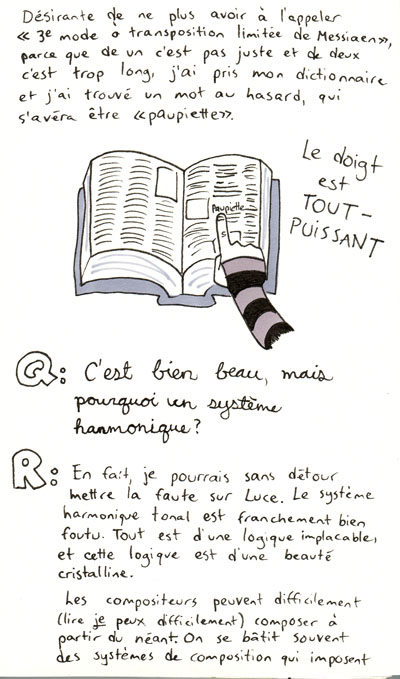 Désirante de ne plus avoir à l'appeler
« 3e mode à transposition limitée de Messiaen»,
parce que de un c'est pas juste et de deux
c'est trop long, j'ai pris mon dictionnaire
et j'ai trouvé un mot au hasard, qui
s'avéra être «paupiette».
Paupiette
Le doigt
est
TOUT-
PUISSANT
Q: C'est bien beau, mais
pourquoi un système
harmonique?
R: En fait, je pourrais sans détour
mettre la faute sur Luce. Le système
harmonique tonal est franchement bien
foutu. Tout est d'une logique implacable,
et cette logique est d'une beauté
cristalline.
Les compositeurs peuvent difficilement
(lire je peux difficilement) composer à
partir du néant. On se bâtit souvent
des systèmes de composition qui imposent